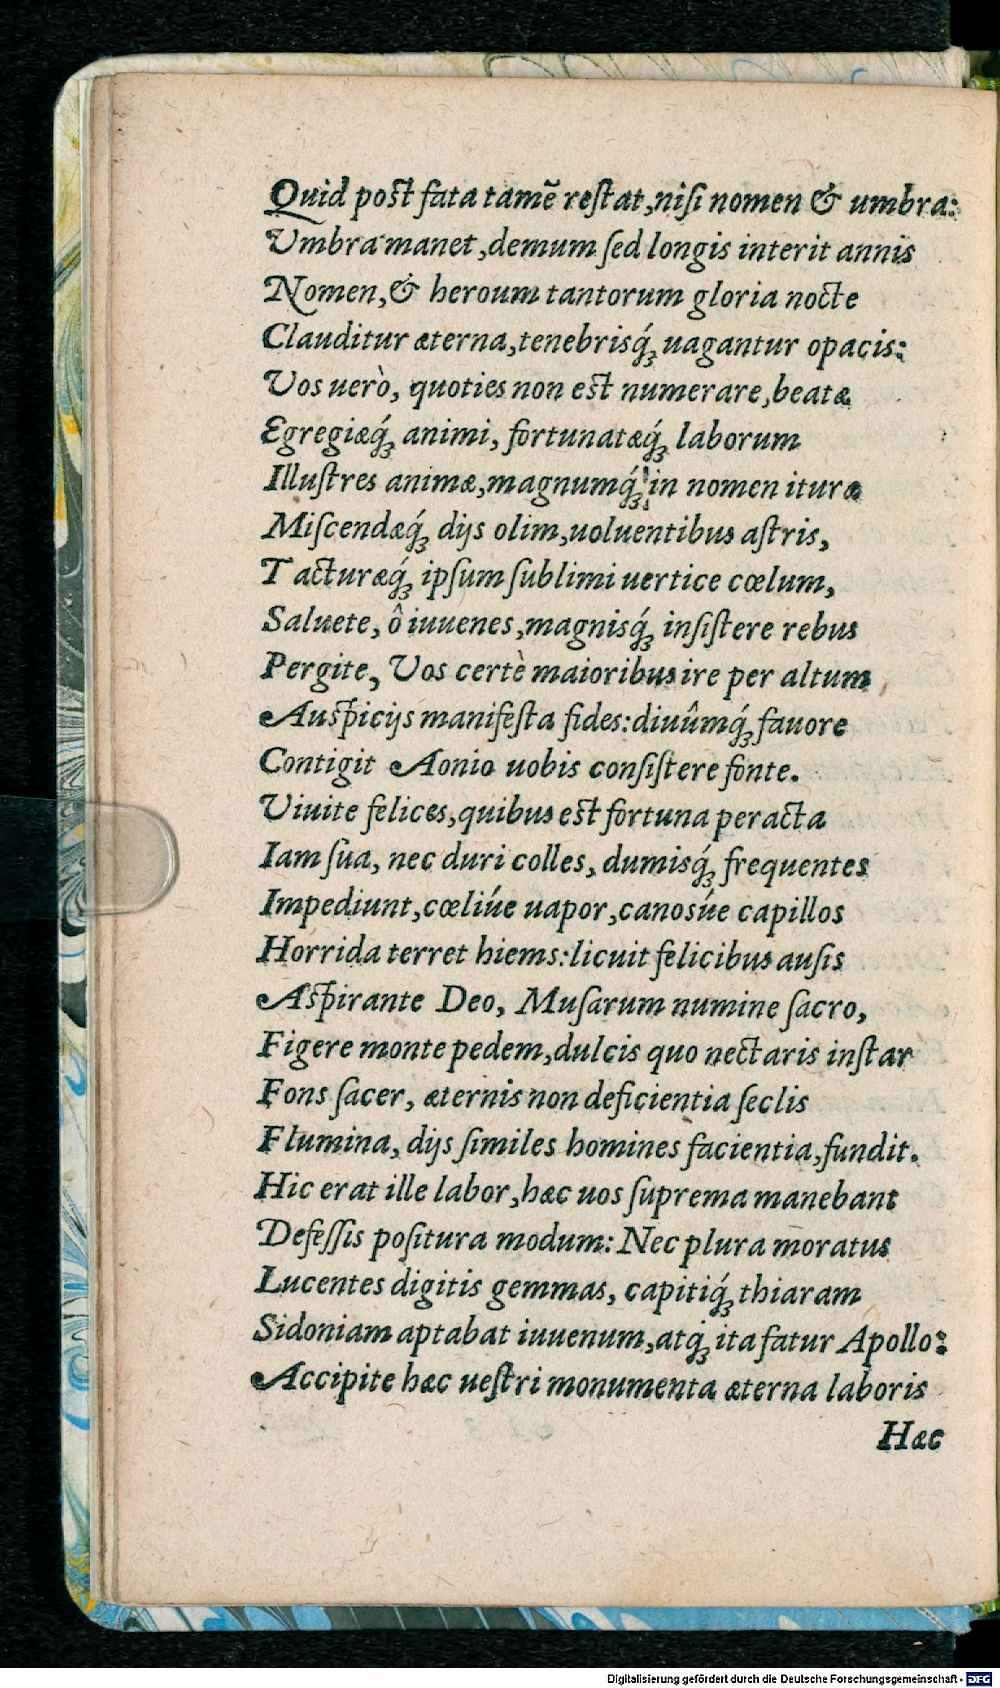 Quid post fata tamẽ restat,nisi nomen & umbra:
Vmbra manet,demum sed longis interit annis
Nomen,& heroum tantorum gloria nocte
Clauditur æterna,tenebrisq́; uagantur opacis:
Vos uerò, quoties non est numerare,beatæ
Egregiæq́; animi, fortunatæq́; laborum
Illustres animæ,magnumq́; in nomen ituræ
Miscendæq́; dijs olim,uoluentibus astris,
Tacturæq́; ipsum sublimi uertice cœlum,
Saluete, ô iuuenes,magnisq́; insistere rebus
Pergite, Vos certè maioribus ire per altum
Auspicijs manifesta fides:diuûmq́; fauore
Contigit Aonio uobis consistere fonte.
Viuite felices,quibus est fortuna peracta
Iam sua, nec duri colles, dumisq́; frequentes
Impediunt,cœliúe uapor,canosúe capillos
Horrida terret hiems:licuit felicibus ausis
Aspirante Deo, Musarum numine sacro,
Figere monte pedem,dulcis quo nectaris instar
Fons sacer, æternis non deficientia seclis
Flumina, dijs similes homines facientia,fundit.
Hic erat ille labor,hæc uos suprema manebant
Defessis positura modum: Nec plura moratus
Lucentes digitis gemmas, capitiq́; thiaram
Sidoniam aptabat iuuenum,atq́; ita fatur Apollo:
Accipite hæc uestri monumenta æterna laboris
Hæc
Digitalisierung gefördert durch die Deutsche Forschungsgemeinschaft - DFG